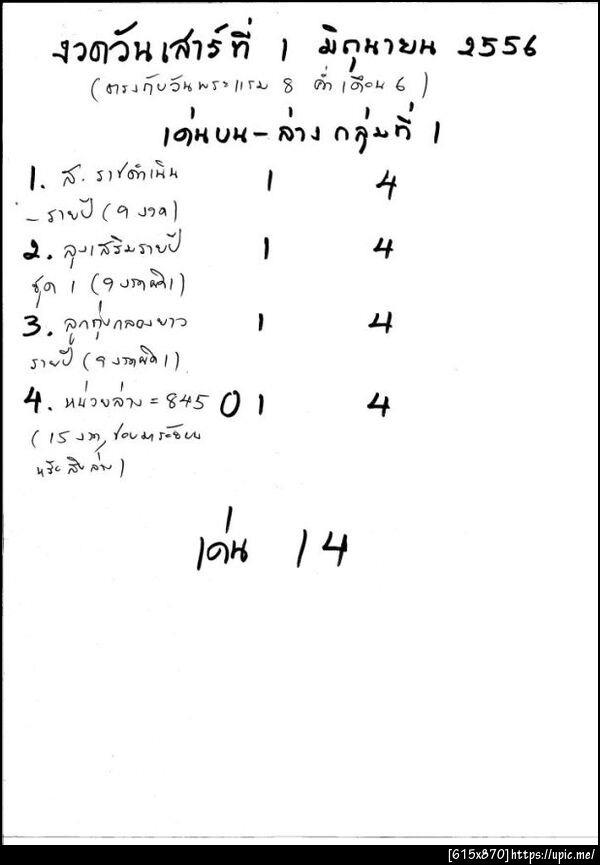 งวดวันเสาร์ที่ 1 มิถุนายน 2556
(ตรงกับวันพระแรม 8 ค่ำ เดือน 6)
เด่นบน-ล่าง กลุ่มที่ 1
1. ส. ราชดำเนิน 1 4
- รายปี (9 งวด)
2. ลุงเสริมรายปี 1 4
ชุด 1 (9 งวดผิด 1)
3. ลูกทุ่งกลองยาว 1 4
รายปี (9 งวดผิด 1)
4. หน่วยล่าง = 845 0 1 4
(15 งวด, ชอบมาร้อยบน
หรือ สิบล่าง)
เด่น 1 4
[615x870]https://upic.me/